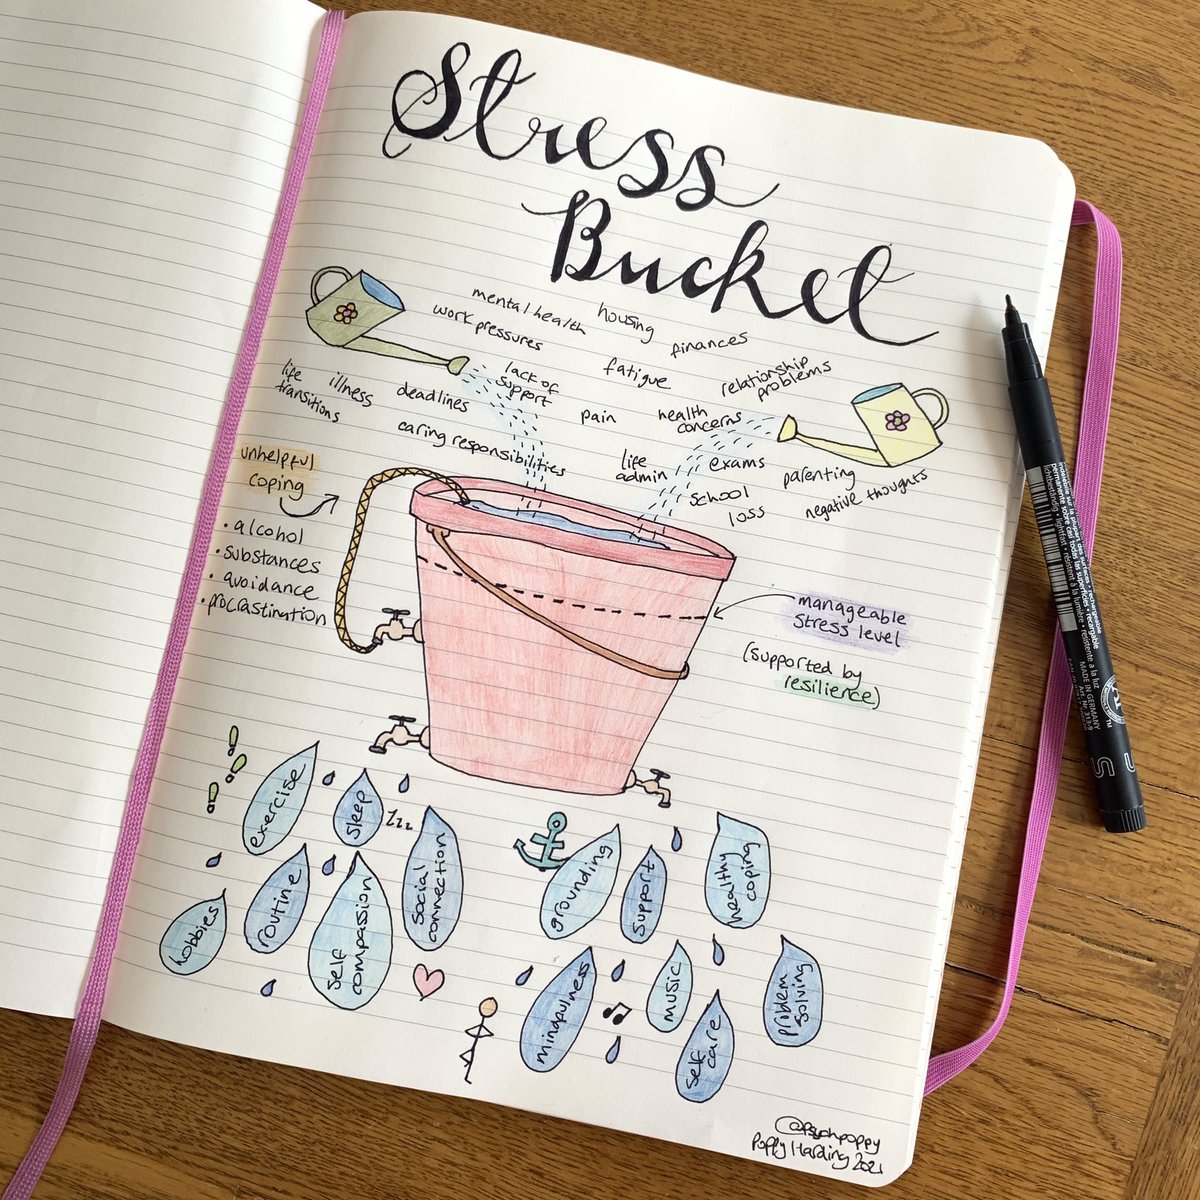 Stress
Bucket
mental health
housing
work pressures
finances
fatigue
lack of
support
relationship
problems
life
transitions
illness
deadlines
pain
health
concerns
caring responsibilities
life
admin
exams
parenting
school
loss
negative thoughts
unhelpful
coping
• alcohol
• substances
• avoidance
• procrastination
manageable
stress level
(supported by
resilience)
exercise
sleep
Zzz
social
connection
hobbies
routine
self
compassion
grounding
support
healthy
coping
mindfulness
music
self
care
problem
solving
@psychpoppy
Poppy Harding 2021
MADE IN GERMANY